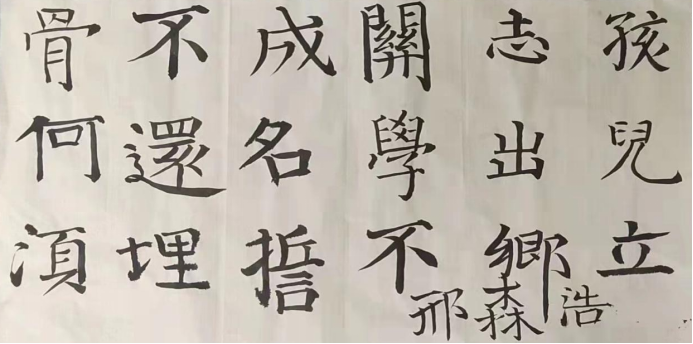 孩兒立
志出鄉
關學不
成名誓
不還埋
骨何湏
邢森浩